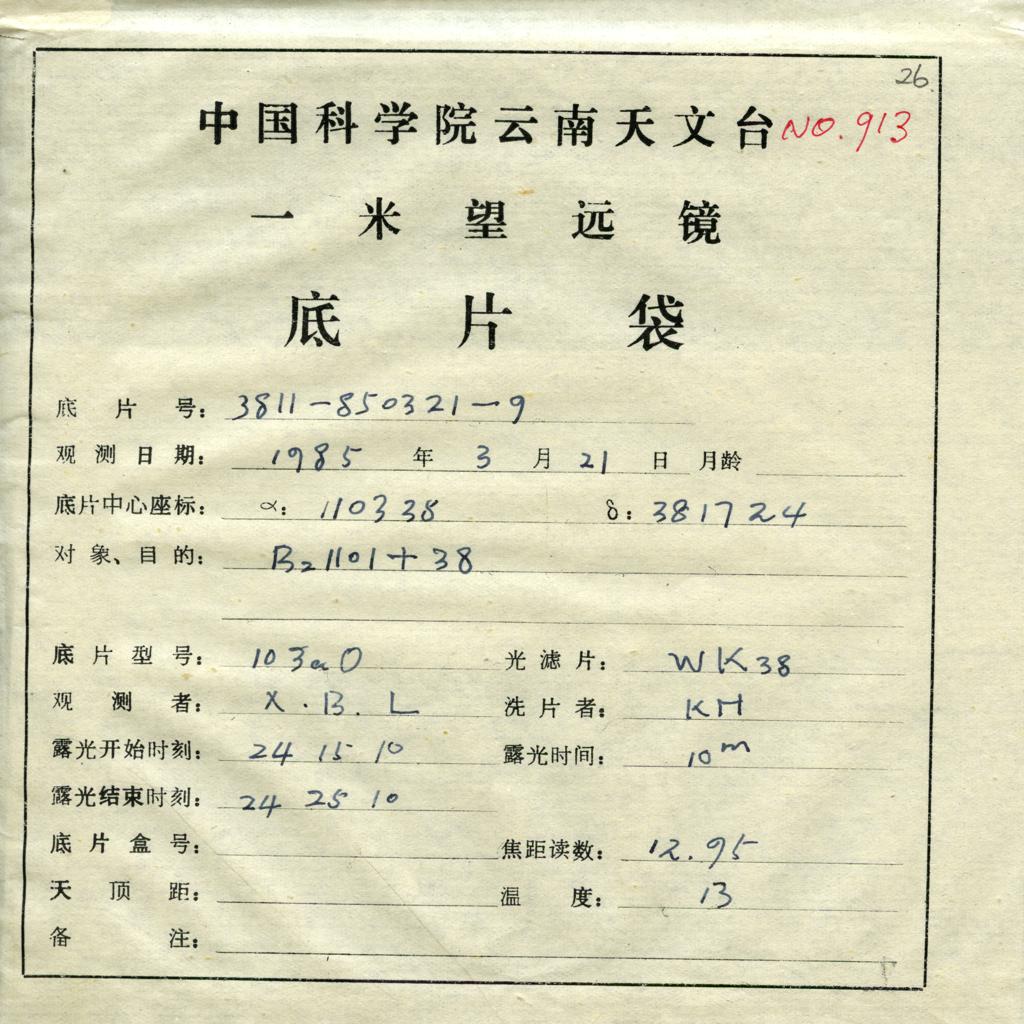 26.
中国科学院云南天文台 NO.913
一米望远镜
底片袋
底片号: 3811-850321-9
观测日期: 1985 年 3 月 21 日 月龄
底片中心座标: α: 110338 δ: 381724
对象、目的: B21101+38
底片型号: 103aO 光滤片: WK38
观测者: X.B.L 洗片者: KH
露光开始时刻: 24 15 10 露光时间: 10m
露光结束时刻: 24 25 10
底片盒号: 焦距读数: 12.95
天顶距: 温度: 13
备注: